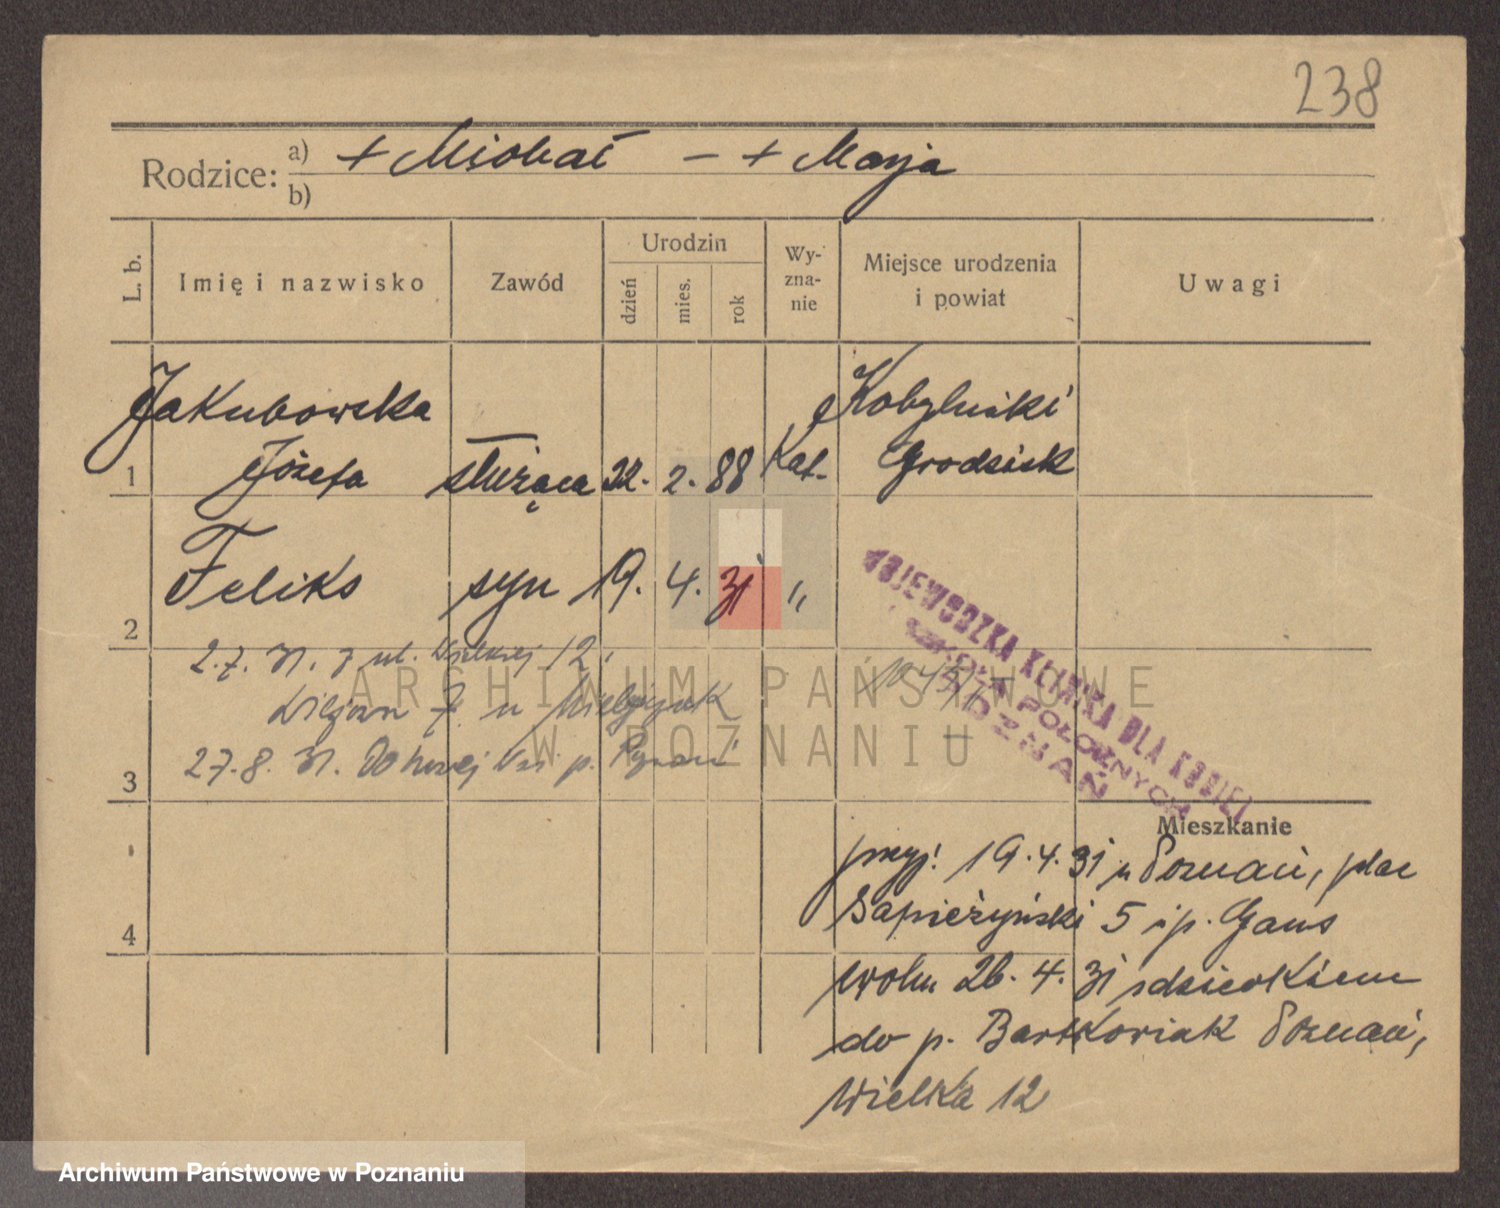 238
Rodzice: a) + Michał - + Marja
b)
L. b.
Imię i nazwisko
Zawód
Urodzin
dzień
mies.
rok
Wy-
zna-
nie
Miejsce urodzenia
i powiat
Uwagi
Jakubowska
Józefa służąca 22. 2. 88 Kat.
Kobylniki
Grodzisk
1
Feliks syn 19. 4. 31 "
2
WOJEWÓDZKA KLINIKA DLA KOBIET
I SZKOŁA POŁOŻNYCH
POZNAŃ
2.7.31. z ul. Wielkiej 12,
7. u
27.8.31. p.
3
Mieszkanie
przyj. 19.4.31 u Poznań, plac
Sapieżyński 5 i p. Gans
4
26.4.31 z dzieckiem
do p. Bartkowiak Poznań,
Wielka 12
ARCHIWUM PAŃSTWOWE
W POZNANIU
Archiwum Państwowe w Poznaniu